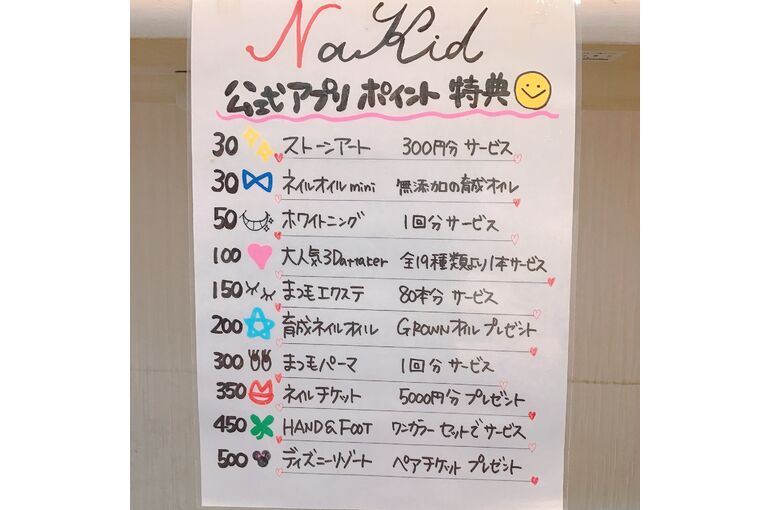 NaKid
公式アプリ ポイント 特典
30 ストーンアート 300円分 サービス
30 ネイルオイルmini 無添加の育成オイル
50 ホワイトニング 1回分 サービス
100 大人気3Dartaker 全19種類より1本サービス
150 まつ毛エクステ 80本分 サービス
200 育成ネイルオイル GROWNオイル プレゼント
300 まつ毛パーマ 1回分 サービス
350 ネイルチケット 5000円分 プレゼント
450 HAND&FOOT ワンカラー セットでサービス
500 ディズニーリゾート ペアチケット プレゼント